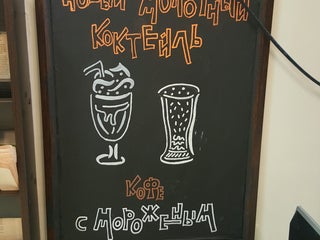 НОВЫЙ МОЛОЧНЫЙ
КОКТЕЙЛЬ
КОФЕ
С МОРОЖЕНЫМ